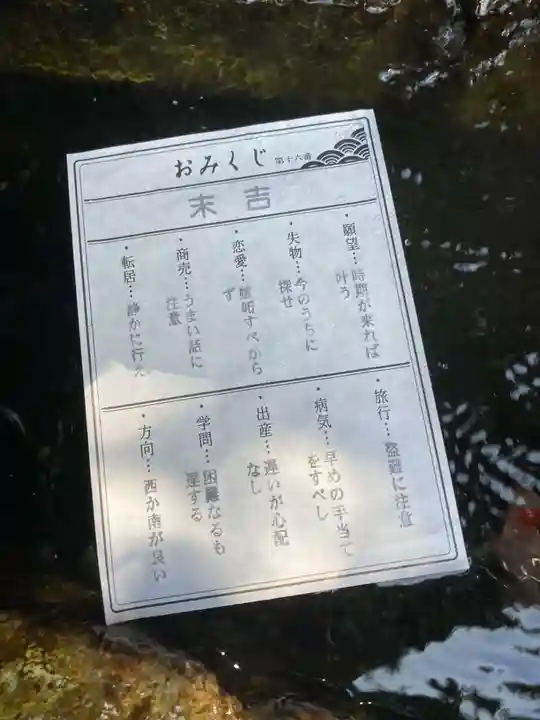 おみくじ 第十六番
末吉
・願望…時期が来れば
叶う
・失物…今のうちに
探せ
・恋愛…嫉妬すべから
ず
・商売…うまい話に
注意
・転居…静かに行え
・旅行…盗難に注意
・病気…早めの手当て
をすべし
・出産…遅いが心配
なし
・学問…困難なるも
達する
・方向…西か南が良い